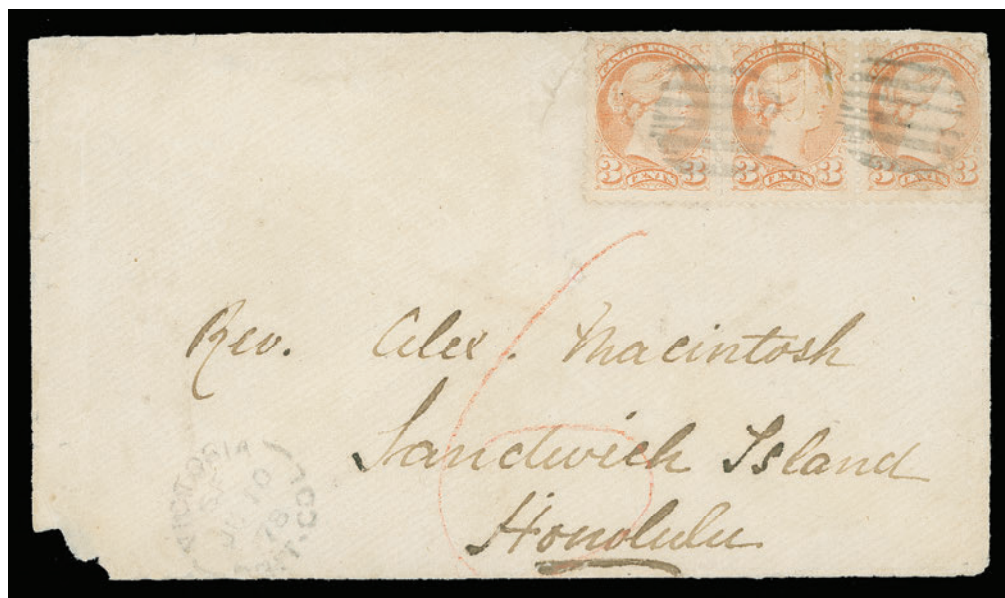 CANADA POSTAGE CANADA POSTAGE CANADA POSTAGE
3 CENTS 3 3 CENTS 3 3 CENTS 3
6
Rev. Alex. Macintosh
Sandwich Island
Honolulu
VICTORIA
10
78
BRIT. COL